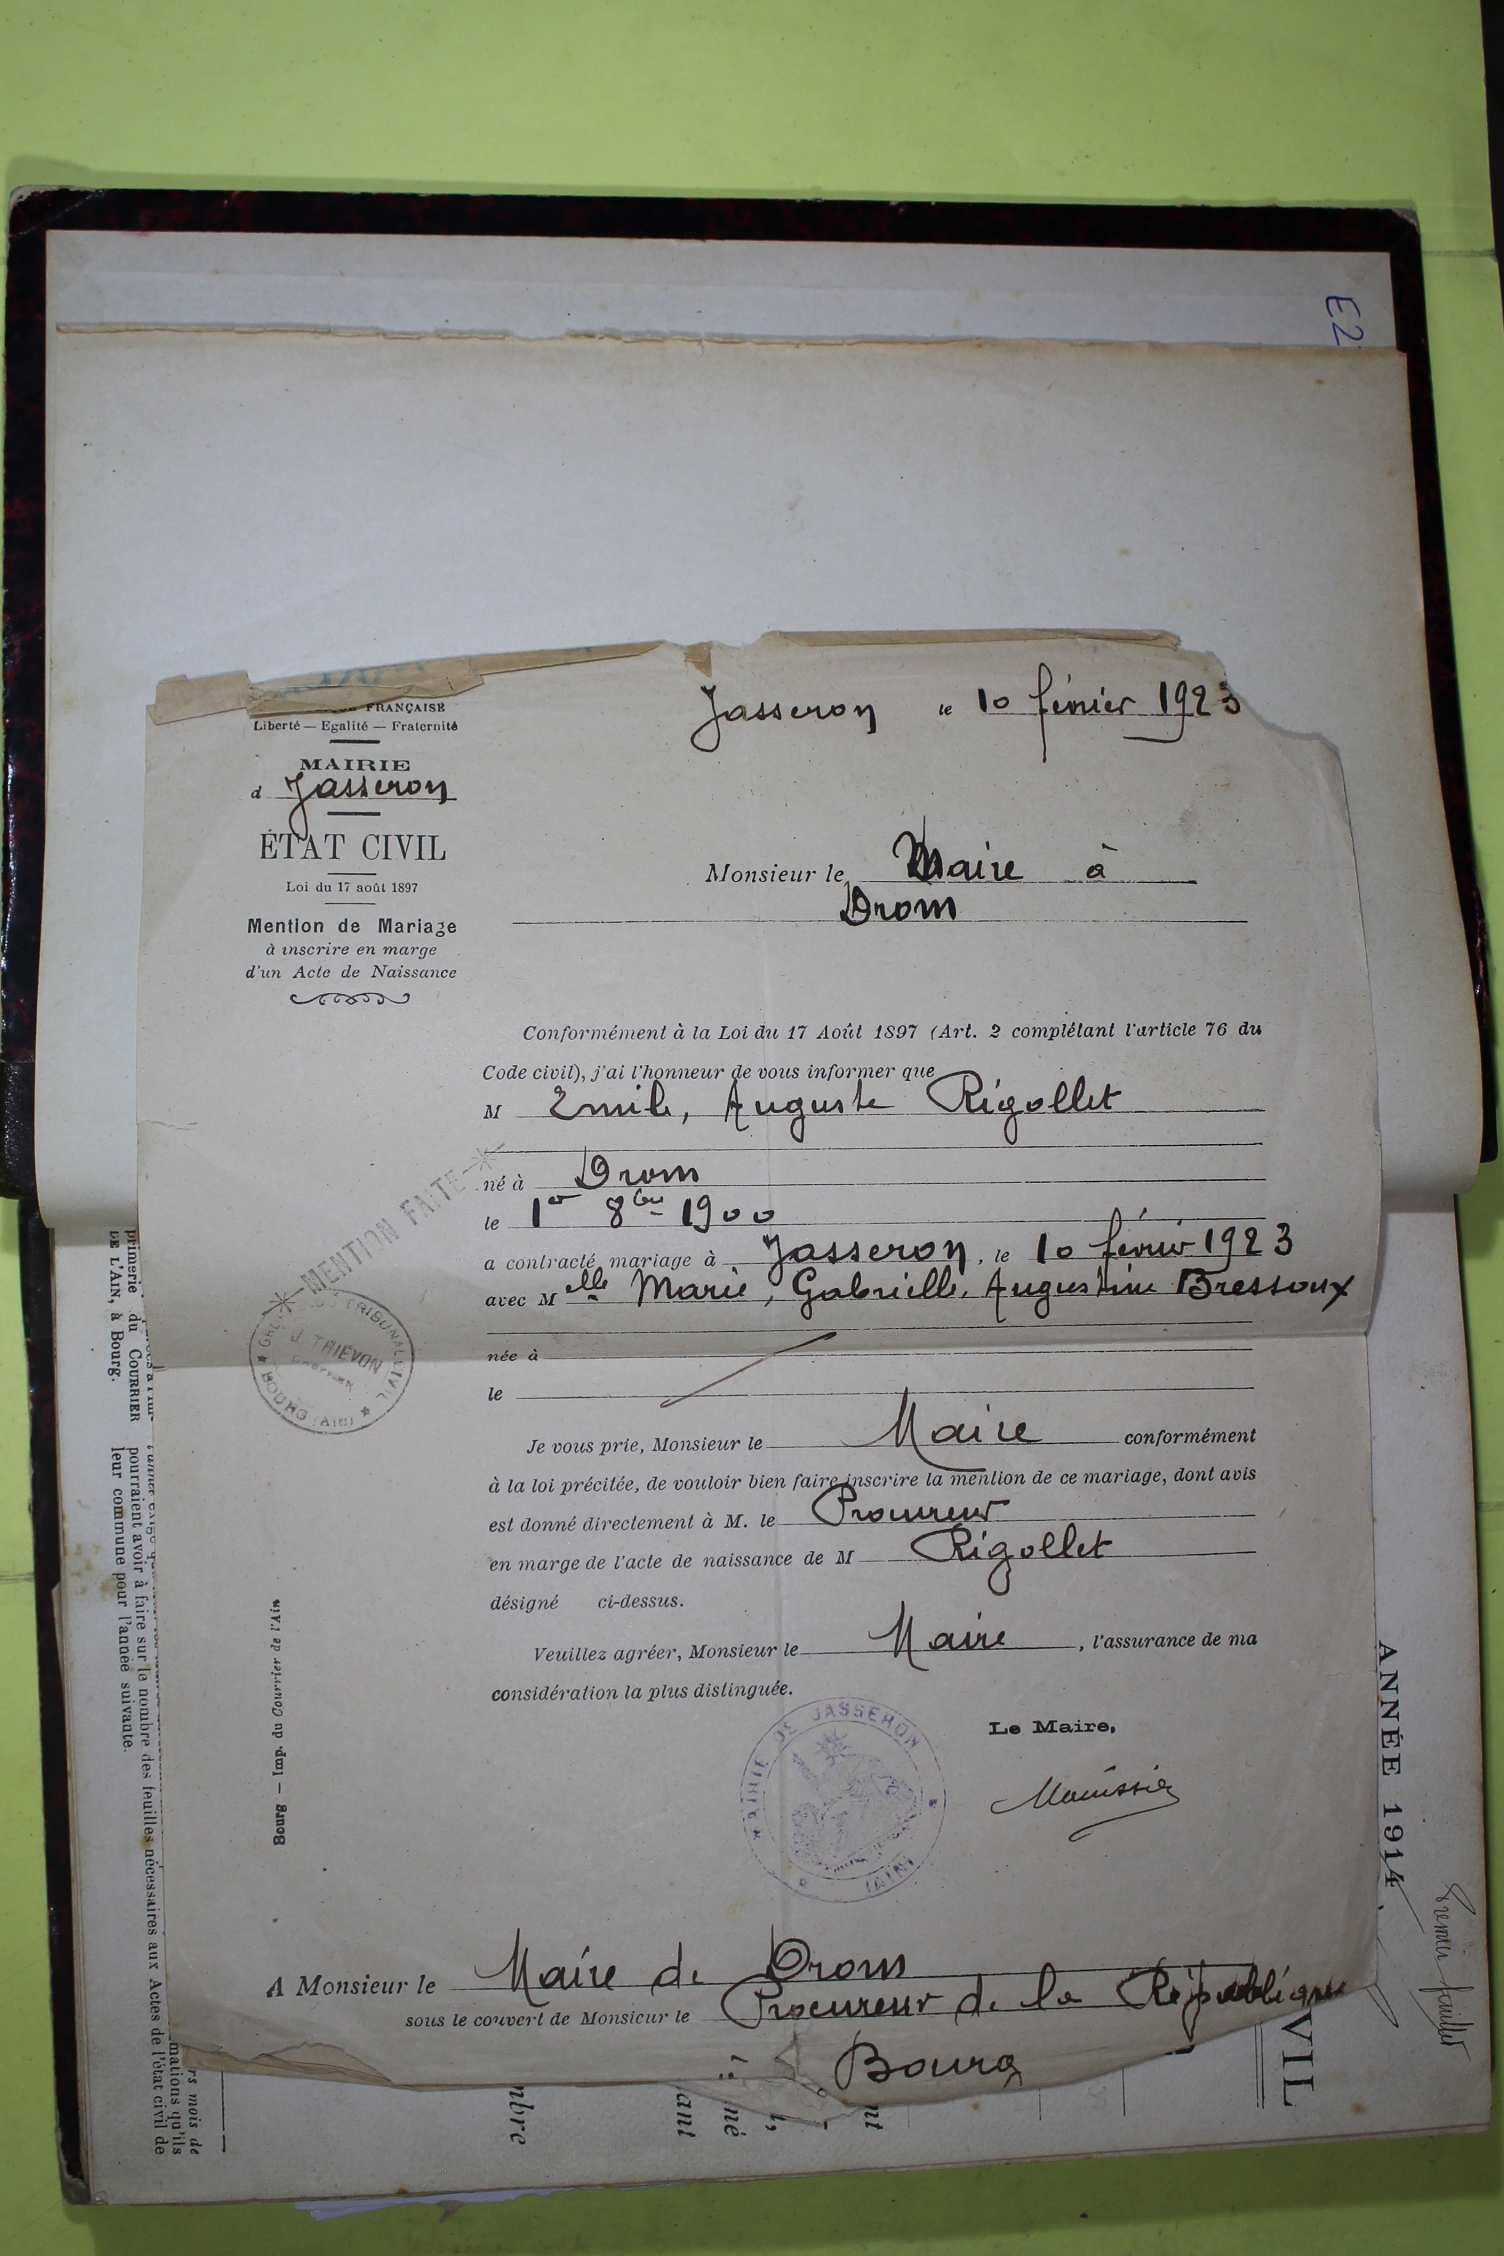 E2
FRANÇAISE
Liberté — Egalité — Fraternité
MAIRIE
d Jasseron
ÉTAT CIVIL
Loi du 17 août 1897
Mention de Mariage
à inscrire en marge
d'un Acte de Naissance
Jasseron le 10 février 1923
Monsieur le Maire à
Drom
Conformément à la Loi du 17 Août 1897 (Art. 2 complétant l'article 76 du
Code civil), j'ai l'honneur de vous informer que
M Emile, Auguste Rigollet
né à Drom
le 1er 8bre 1900
a contracté mariage à Jasseron, le 10 février 1923
avec Melle Marie, Gabrielle, Augustine Bressoux
née à
le
MENTION FAITE
TRIBUNAL CIVIL
J. TRIEVON
BOURG (Ain)
Je vous prie, Monsieur le Maire conformément
à la loi précitée, de vouloir bien faire inscrire la mention de ce mariage, dont avis
est donné directement à M. le Procureur
en marge de l'acte de naissance de M Rigollet
désigné ci-dessus.
Veuillez agréer, Monsieur le Maire, l'assurance de ma
considération la plus distinguée.
Le Maire,
MAIRIE DE JASSERON
(AIN)
Bourg — Imp. du Courrier de l'Ain
A Monsieur le Maire de Drom
sous le couvert de Monsieur le Procureur de la République
à Bourg
ANNÉE 1914
Premier feuillet
VIL
primerie du COURRIER
DE L'AIN, à Bourg.
pourraient avoir à faire sur le nombre des feuilles nécessaires aux Actes de l'état civil de
leur commune pour l'année suivante.
rs mois de
mations qu'ils
mbre
ant
né
nt